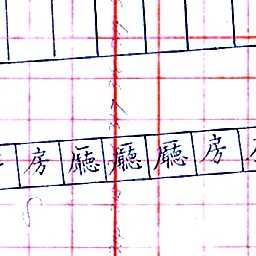 房廳廳廳房